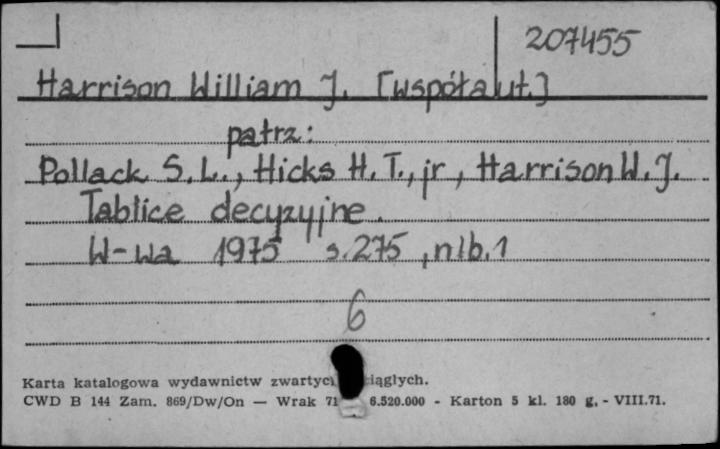 207455
Harrison William J. [współaut.]
patrz:
Pollack S.L., Hicks H.T., jr, Harrison W.J.
Tablice decyzyjne.
W-wa 1975 s.275, nlb.1
6
Karta katalogowa wydawnictw zwartyc iągłych.
CWD B 144 Zam. 869/Dw/On — Wrak 71 6.520.000 - Karton 5 kl. 180 g. - VIII.71.